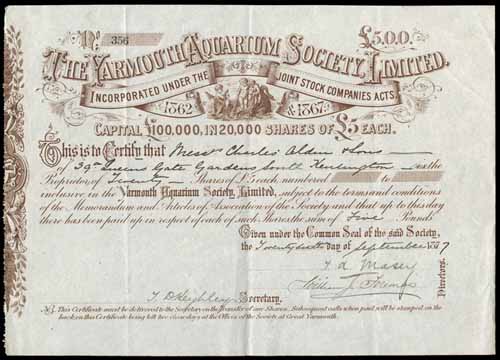 No. 356 £5.0.0.
THE YARMOUTH AQUARIUM SOCIETY, LIMITED.
INCORPORATED UNDER THE JOINT STOCK COMPANIES ACTS
1862 & 1867.
CAPITAL £100,000, IN 20,000 SHARES OF £5 EACH.
This is to Certify that Messrs Charles & Sons
of 39 Queens Gate Gardens South Kensington is the
Proprietor of Shares of £5 each, numbered to
inclusive in the Yarmouth Aquarium Society, Limited, subject to the terms and conditions
of the Memorandum and Articles of Association of the Society and that up to this day
there has been paid up in respect of each of such Shares, the sum of Five Pounds
Given under the Common Seal of the said Society,
the day of September 1877
Directors.
Secretary.
N.B. This Certificate must be delivered to the Secretary on the Transfer of any Shares, Subsequent calls when paid will be stamped on the
back on this Certificate being left two clear days at the Office of the Society at Great Yarmouth.